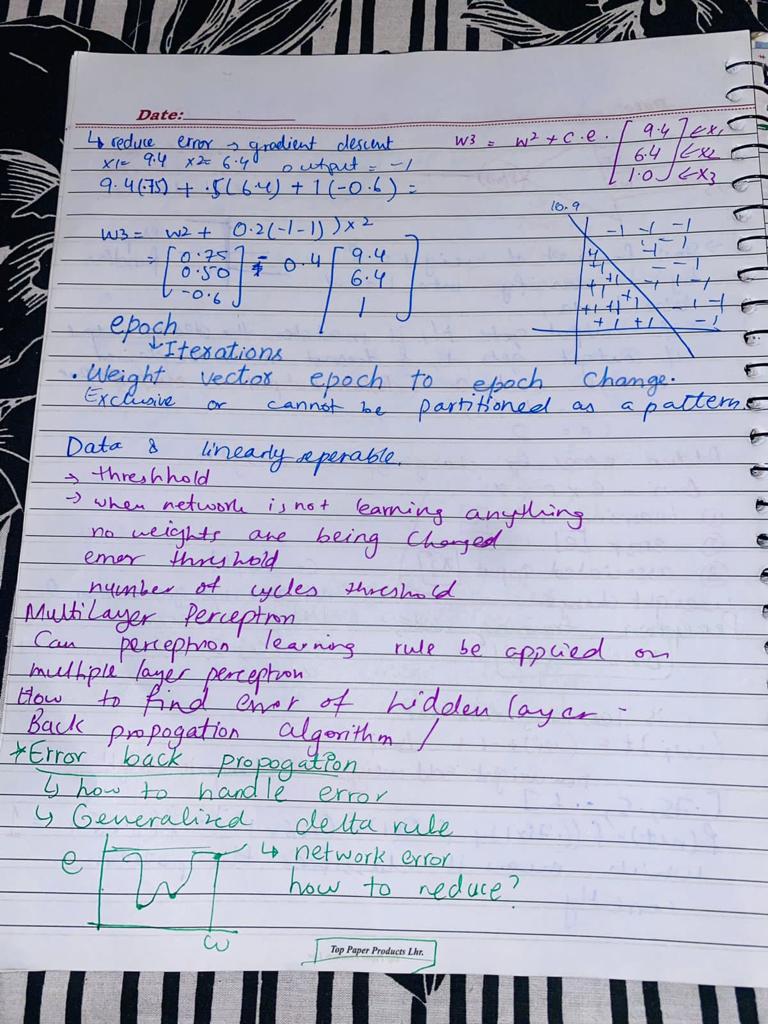 Date:
↳ reduce error → gradient descent
x1= 9.4 x2= 6.4 output = -1
9.4(.75) + .5(6.4) + 1(-0.6) =
w3 = w2 + c.e. [ 9.4 ] ← x1
[ 6.4 ] ← x2
[ 1.0 ] ← x3
w3= w2 + 0.2(-1-1))x2
= [ 0.75 ] - 0.4 [ 9.4 ]
[ 0.50 ] [ 6.4 ]
[ -0.6 ] [ 1 ]
10.9
-1 -1 -1
-1 -1
+1 - -1
+1 +1 -1 -1 -1
+1 +1 +1 -1 -1
+1 +1 -1
epoch
↳ Iterations
• Weight vector epoch to epoch change.
Exclusive or cannot be partitioned as a pattern.
Data & linearly seperable.
→ threshhold
→ when network is not learning anything
no weights are being changed
error threshold
number of cycles threshold
Multilayer Perceptron
Can perceptron learning rule be applied on
multiple layer perceptron
How to find error of hidden layer -
Back propogation algorithm /
* Error back propogation
↳ how to handle error
↳ Generalized delta rule
↳ network error
how to reduce?
e
w
Top Paper Products Lhr.